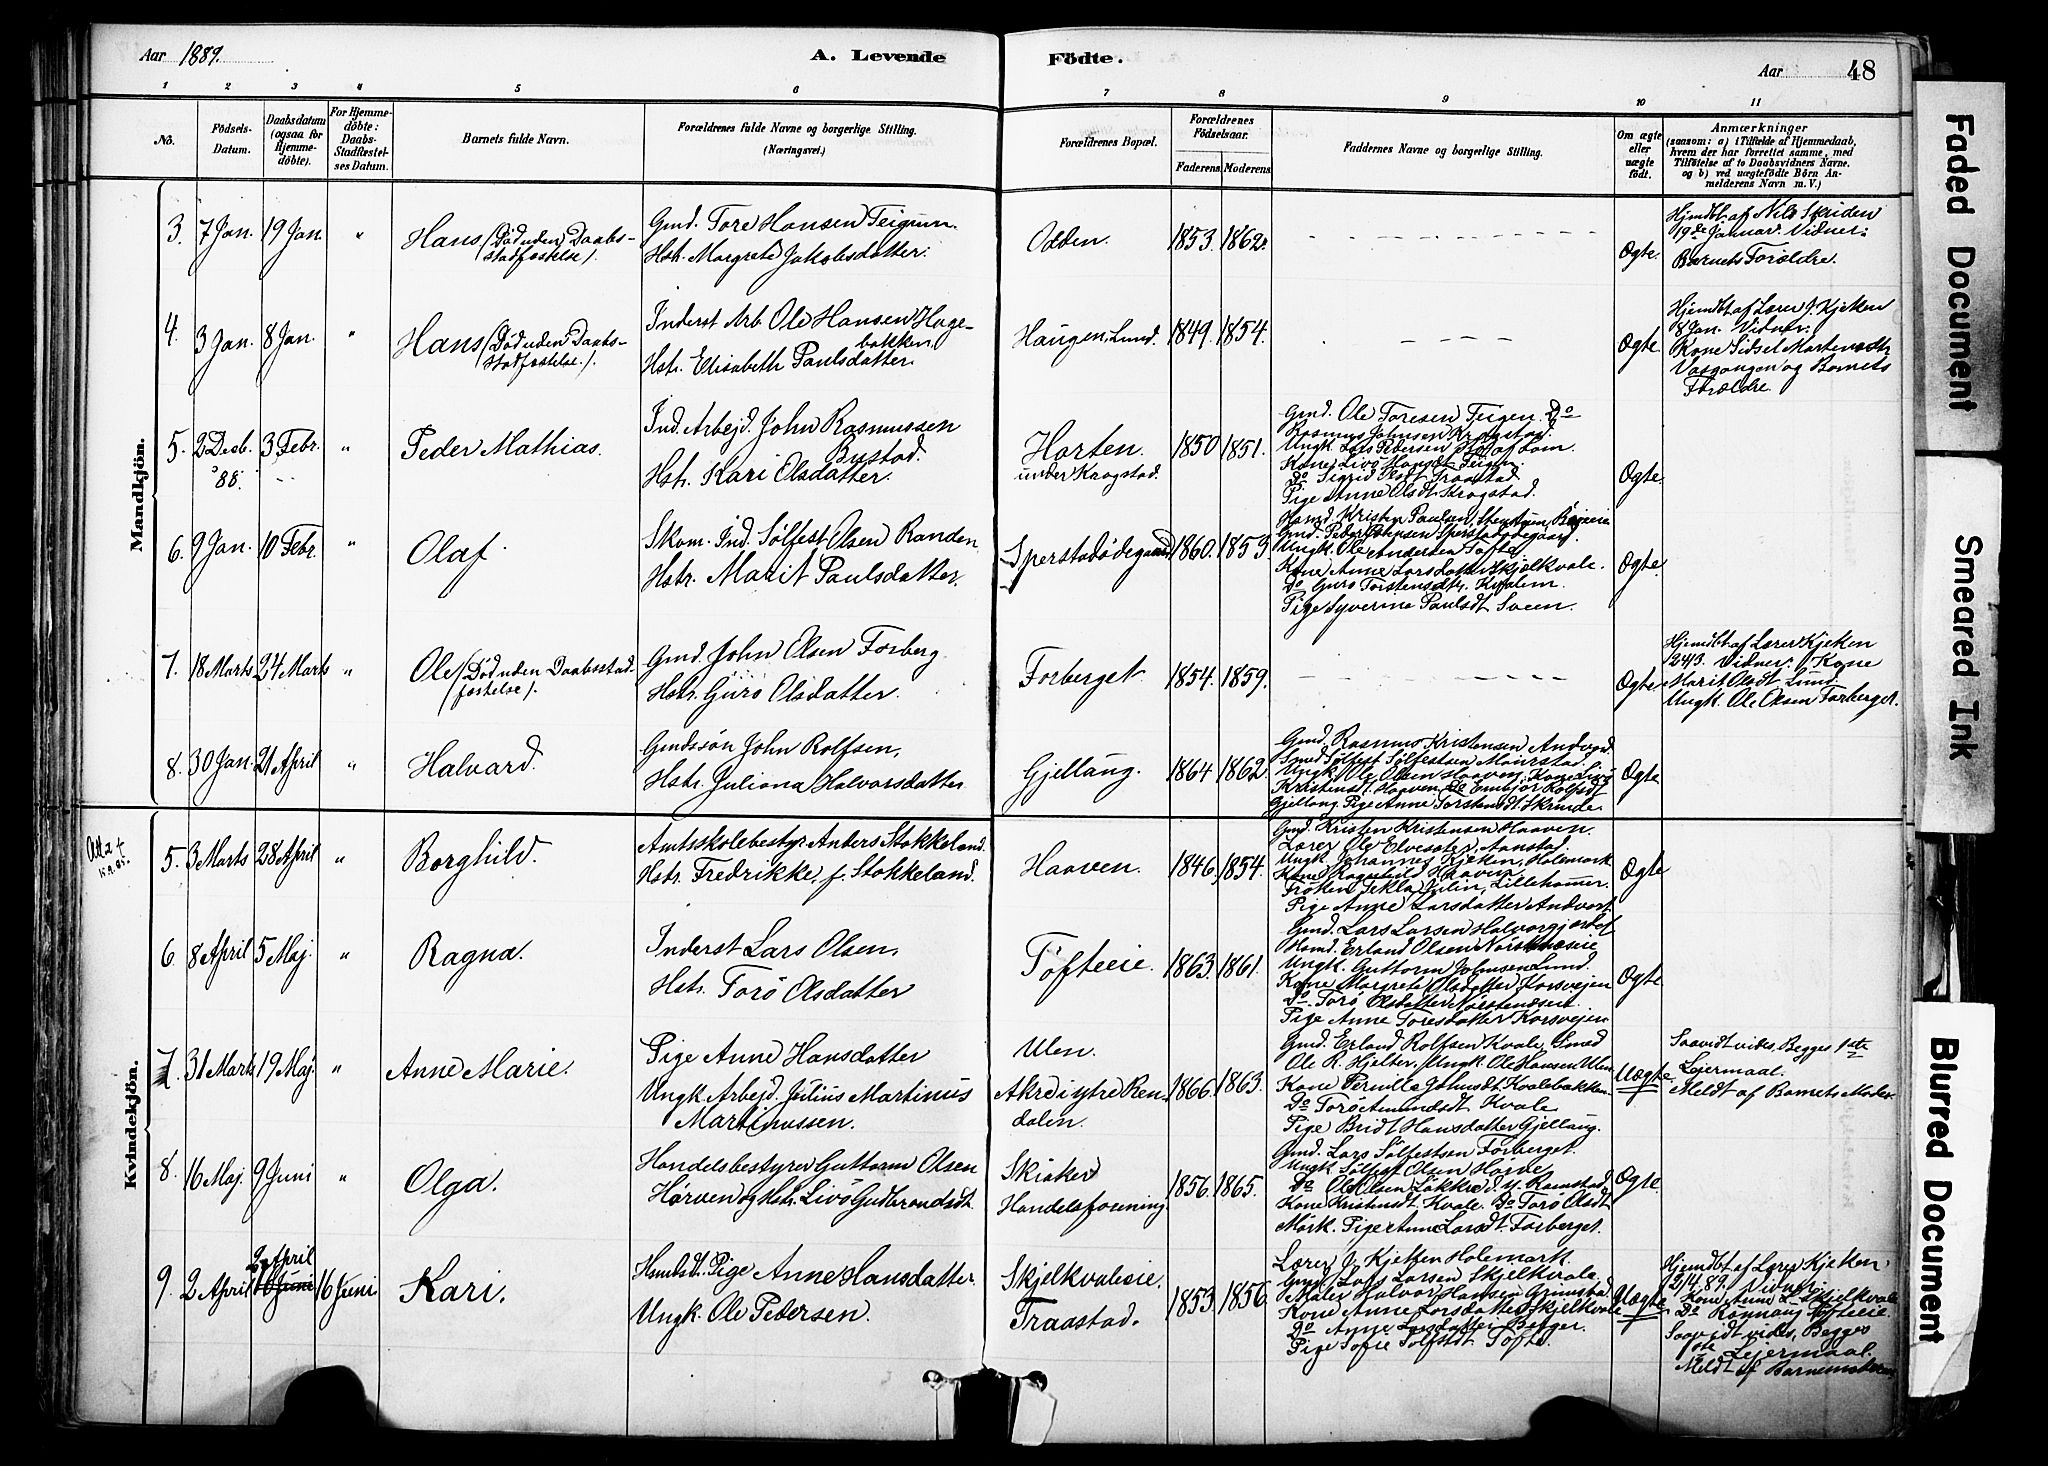 Aar 1889.
A. Levende Födte.
Aar
48
1 2 3 4 5 6 7 8 9 10 11
No.
Födsels-Datum.
Daabsdatum (ogsaa for Hjemme-döbte).
For Hjemme-döbte: Daabs-Stadfæstel-ses Datum.
Barnets fulde Navn.
Forældrenes fulde Navne og borgerlige Stilling.
(Næringsvei.)
Forældrenes Bopæl.
Forældrenes Födselsaar.
Faderens. Moderens.
Faddernes Navne og borgerlige Stilling.
Om ægte eller uægte födt.
Anmærkninger
(saasom: a) i Tilfælde af Hjemmedaab, hvem der har forrettet samme, med Tilföielse af to Daabsvidners Navne, og b) ved uægtefödte Börn An-melderens Navn m. V.)
Mandkjön.
3. 7 Jan. 19 Jan. " Hans (Död uden Daabs-stadfæstelse).
Gmd. Tore Hansen Teigum.
Hstr. Margrete Jakobsdatter.
Odden. 1853. 1862. Ægte.
Hjemdbt. af Nils Skriden
19de Januar. Vidner:
Barnets Forældre.
4. 3 Jan. 8 Jan. " Hans (Död uden Daabs-stadfæstelse.).
Inderst Arb. Ole Hansen Hage-bakken
Hstr. Elisabeth Paulsdatter.
Haugen, Lund. 1849. 1854. Ægte.
Hjemdbt af Lærer J. Kjeken
8 Jan. Vidner:
Kone Sidsel Mortensdtr
Vasgangen og Barnets
Forældre.
5. 2 Decb. '88. 3 Febr. " Peder Mathias.
Ind. Arbejd. John Rasmussen
Bustad.
Hstr. Kari Olsdatter.
Horten.
under Kragstad.
1850 1851.
Gmd. Ole Toresen Teigen. Do
Rasmus Johnsen Kragstad.
Ungk. Lars Pedersen af Lom.
Kone Livö Hansdt Teigen.
Do Sigrid Olsdt Traastad.
Pige Anne Olsdt. Kragstad.
Ægte.
6. 9 Jan. 10 Febr. " Olaf.
Skom. Ind. Sölfest Olsen Randen
Hstr. Marit Paulsdatter.
Sperstadödegaard 1860. 1853
Hamd. Kristen Paulsen,
Gmd. Peder Sperstadödegaard.
Ungk. Ole Andersen Tofte
Kone Anne Larsdatter Skjelkvale.
Do Guro Torstensdtr. Kvalem.
Pige Syverine Paulsdt Sveen.
Ægte.
7. 18 Marts 24 Marts " Ole (Död uden Daabsstad-fæstelse).
Gmd. John Olsen Forberg
Hstr. Gurö Olsdatter.
Forberget 1854. 1859. Ægte.
Hjemdbt af Lærer Kjeken
24/3. Vidner: Kone
Marit Olsdt. Lund.
Ungk. Ole Olsen Forberget.
8. 30 Jan. 21 April " Halvard.
Gmdssön John Rolfsen,
Hstr. Juliana Halvorsdatter.
Gjellaug. 1864 1862.
Gmd. Rasmus Kristensen Andvord
Smed Sölfest Sölfestsen
Ungk. Ole Olsen Haaven, Kone Livö
Kristensdt. Haaven. Do Embjör Rolfsdt
Gjellaug. Pige Anne Torstensdt. Skrinde.
Ægte
Kvindekjön.
5. 3 Marts 28 April " Borghild.
Amtsskolebestyr. Anders Stokkeland.
Hstr. Fredrikke, f. Stokkeland.
Haaven. 1846. 1854.
Gmd. Kristen Kristensen Haaven.
Lærer Ole Elvesæter, Aanstad.
Ungk. Johannes Kjeken, Holemark
Kone Ragnhild Haaven,
Fröken Tekla Julin, Lillehamer.
Pige Anne Larsdatter Andvort
Ægte
6. 8 April 5 Maj. " Ragna.
Inderst Lars Olsen,
Hstr. Torö Olsdatter
Töfteeie. 1863. 1861.
Gmd. Lars Larsen Halvorgjordet
Hamd. Erland Olsen
Ungk. Guttorm Johnsen Lund.
Kone Margrete Olsdatter Korsvejen
Do. Torö Olsdatter
Pige Anne Toresdatter Korsvejen
Ægte.
7. 31 Marts 19 Maj. " Anne Marie.
Pige Anne Hansdatter
Ungk. Arbejd. Julius Martinus
Martinussen.
Ulen.
Akre i ytre Ren-dalen.
1866. 1863.
Gmd. Erland Rolfsen Kvale, Smed
Ole R. Hjelter, Ungk. Ole Hansen Ulen
Kone Pernille Johnsdt. Kvalebakken
Do Torö Amundsdt. Kvale
Pige Bridt Hansdatter Gjellaug.
Uægte.
Saavidt vides, Begges 1ste
Lejermaal.
Meldt af Barnets Moder
8. 16 Maj. 9 Juni " Olga.
Handelsbestyrer Guttorm Olsen
Hörven og Hstr. Livö Gudbrandsdt.
Skiaker
Handelsforening
1856. 1865.
Gmd. Lars Sölfestsen Forberget.
Ungk. Sölfest Olsen
Do Ole Olsen Lökkre d. y.
Kone Kristensdt. Kvale. Do Torö Olsdt
Mörk. Pige Anne Larsdt Forberget.
Ægte.
9. 2 April 2 April 16 Juni 16 Juni Kari.
Pige Anne Hansdatter.
Ungk. Ole Pedersen.
Skjelkvaleeie.
Traastad.
1853. 1856
Lærer J. Kjelken Holemark.
Gmd. Lars Larsen Skjelkvale
Maler Halvor Hansen Grimstad
Kone Anne Larsdatter Skjelkvale
Do Anne Larsdatter
Pige Sofie Tofte.
Uægte
Hjemdbt af Lærer Kjeken.
2/4 89. Vidner:
Kone Anne L. Skjelkvale
Do Rönnaug Töfteeie.
Saavidt vides, Begges
1ste Lejermaal.
Meldt af Barnemoderen
Faded Document
Smeared Ink
Blurred Document